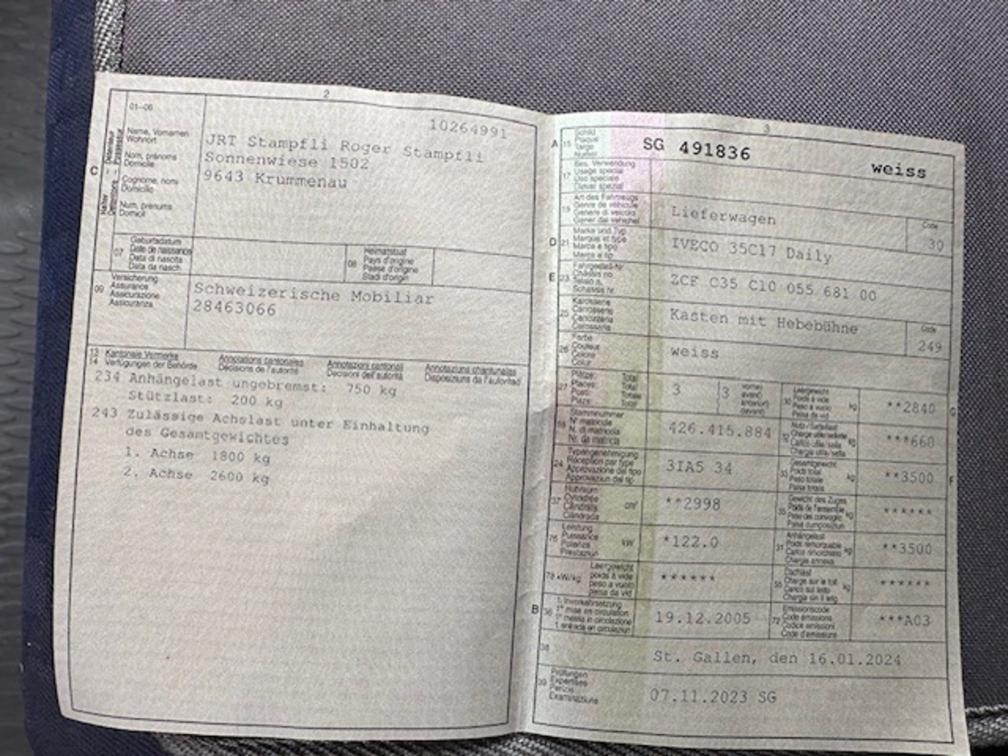 2
01-06
10264991
C
Name, Vornamen
Wohnort
Nom, prénoms
Domicile
Cognome, nomi
Domicilio
Num, prenums
Domicil
JRT Stampfli Roger Stampfli
Sonnenwiese 1502
9643 Krummenau
07
Geburtsdatum
Date de naissance
Data di nascita
Data da nasch.
08
Heimatstaat
Pays d'origine
Paese d'origine
Stadi d'origin
09
Versicherung
Assurance
Assicurazione
Assicuranza
Schweizerische Mobiliar
28463066
13 Kantonale Vermerke Annotations cantonales Annotazioni cantonali Annotaziuns chantunalas
14 Verfügungen der Behörde Décisions de l'autorité Decisioni dell'autorità Disposiziuns da l'autoritad
234 Anhängelast ungebremst: 750 kg
Stützlast: 200 kg
243 Zulässige Achslast unter Einhaltung
des Gesamtgewichtes
1. Achse 1800 kg
2. Achse 2600 kg
3
A 15
Schild
Plaque
Targa
Numer
SG 491836 weiss
17
Bes. Verwendung
Usage spécial
Uso speciale
Diever spezial
19
Art des Fahrzeugs
Genre de véhicule
Genere di veicolo
Gener dal vehichel
Lieferwagen
Code
30
D 21
Marke und Typ
Marque et type
Marca e tipo
Marca e tip
IVECO 35C17 Daily
E 23
Fahrgestell-Nr.
Châssis no
Telaio n.
Schassis nr.
ZCF C35 C10 055 681 00
25
Karosserie
Carrosserie
Carrozzeria
Carossaria
Kasten mit Hebebühne
Code
249
26
Farbe
Couleur
Colore
Colur
weiss
27
Plätze: Total
Places: Total
Posti: Totale
Plazs: Total
3
3
vorne
avant
anteriori
davant
Leergewicht
Poids à vide
Peso a vuoto
Paisa da vid
kg
**2840
G
18
Stammnummer
N° matricule
N. di matricola
Nr. da matricla
426.415.884
32
Nutz-/Sattellast
Charge utile/sellette
Carico utile/sella
Chargia utila/sella
kg
***660
24
Typengenehmigung
Réception par type
Approvazione del tipo
Approvaziun dal tip
3IA5 34
33
Gesamtgewicht
Poids total
Peso totale
Paisa totala
kg
**3500
F
37
Hubraum
Cylindrée
Cilindrata
Cilindrada
cm³
**2998
35
Gewicht des Zuges
Poids de l'ensemble
Peso del convoglio
Paisa cumposiziun
kg
******
76
Leistung
Puissance
Potenza
Prestaziun
kW
*122.0
31
Anhängelast
Poids remorquable
Carico rimorchiato
Chargia annexa
kg
**3500
78 kW/kg
Leergewicht
poids à vide
peso a vuoto
paisa da vid
******
55
Dachlast
Charge sur le toit
Carico sul tetto
Chargia sin il tetg
kg
******
B 36
1. Inverkehrsetzung
1re mise en circulation
1a messa in circolazione
1. entrada en circulaziun
19.12.2005
72
Emissionscode
Code émissions
Codice emissioni
Code d'emissiuns
***A03
38
St. Gallen, den 16.01.2024
39
Prüfungen
Expertises
Perizie
Examinaziuns
07.11.2023 SG